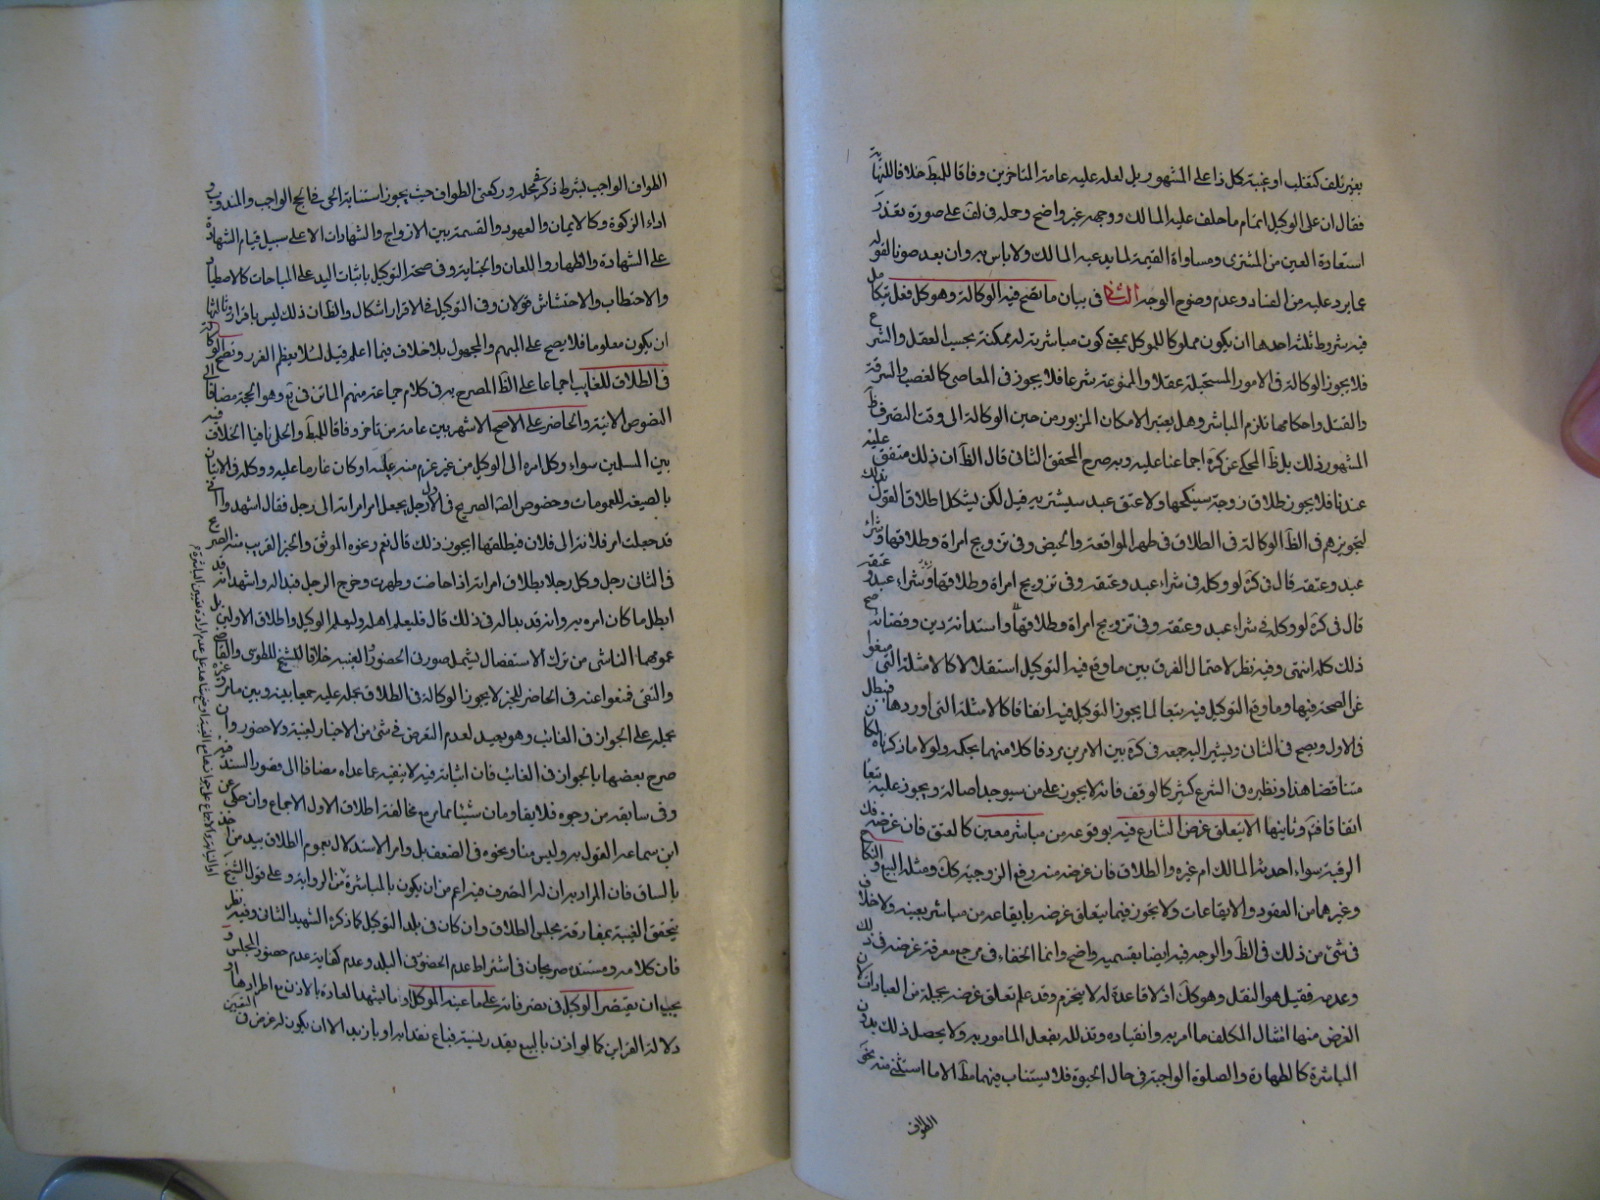 بغير تلف كتغلب او غيبة كل ذا على المشهور بل لعله عليه عامة المتاخرين وفاقا للمبسوط خلافا للنهاية
فقال ان على الوكيل اتمام ما حلف عليه المالك ووجهه غير واضح وحمله في لف على صورة تعذر
استعادة العين من المشترى ومساواة القيمة لما يدعيه المالك ولا باس به وان بعد صونا لقوله
عما يرد عليه من الفساد وعدم وضوح الوجه الثانى فى بيان ما تصح فيه الوكالة وهو كل فعل تكامل
فيه شروط ثلثة احدها ان يكون مملوكا للموكل بمعنى كون مباشرته له ممكنة بحسب العقل والشرع
فلا يجوز الوكالة فى الامور المستحيلة عقلا والممنوعة شرعا فلا يجوز فى المعاصى كالغصب والسرقة
والقتل واحكامها تلزم المباشر وهل يعتبر الامكان المزبور من حين الوكالة الى وقت التصرف ظ
المشهور ذلك بل ظ المحكى عن كره اجماعنا عليه وبه صرح المحقق الثانى قال الظ ان ذلك متفق عليه
عندنا فلا يجوز طلاق زوجة سينكحها ولا عتق عبد سيشتريه قيل لكن يشكل اطلاق القول بذلك
لتجويزهم فى الظ الوكالة فى الطلاق فى طهر المواقعة والحيض وفى تزويج امراة وطلاقها وشراء
عبد وعتقه قال فى كره لو وكله فى شراء عبد وعتقه وفى تزويج امراة وطلاقها وشراء عبد وعتقه
قال فى كره لو وكله فى شراء عبد وعتقه وفى تزويج امراة وطلاقها واستدانة دين وقضائه صح
ذلك كله انتهى وفيه نظر لاحتمال الفرق بين ما وقع فيه التوكيل استقلالا كالامثلة التى منعوا
عن الصحة فيها وما وقع التوكيل فيه بتبعا لما يجوز التوكيل فيه اتفاقا كالامثلة التى اوردها فبطل
فى الاول ويصح فى الثانى ويشير اليه جمعه فى كره بين الامرين مردفا كلا منهما بحكمه ولولا ما ذكرناه لكان
متناقضا هذا ونظيره فى الشرع كثير كالوقف فانه لا يجوز على من سيوجد اصالة ويجوز عليه تبعا
اتفاقا وثانيها الا يتعلق غرض الشارع فيه بوقوعه من مباشر معين كالعتق فان غرضه فك
الرقبة سواء احدثه المالك ام غيره والطلاق فان غرضه منه رفع الزوجية كك ومثله البيع والنكاح
وغيرهما من العقود والايقاعات ولا يجوز فيما يتعلق غرضه بايقاعه من مباشر بعينه ولا خلاف
فى شئ من ذلك فى الظ والوجه فيه ايضا بقسميه واضح وانما الخفاء فى مرجع معرفة غرضه فى ذلك
وعدمه فقيل هو النقل وهو كك اذ لا قاعدة له لا ينخرم وقد علم تعلق غرضه بجملة من العبادات لان
الغرض منها امتثال المكلف ما امر به وانقياده وتذلله بفعل المامور به ولا يحصل ذلك بدون
المباشرة كالطهارة والصلوة الواجبة فى حال الحيوة فلا يستناب فيهما مط الا ما استثنى منه نحو
الطواف
الطواف الواجب بشرط ذكر فى محله وركعتى الطواف حيث يجوز استنابة الحى فى الحج الواجب والمندوب و
اداء الزكوة وكالايمان والعهود والقسمة بين الازواج والشهادات الا على سبيل قيام الشهادة
على الشهادة والظهار واللعان والجناية وفى صحة التوكيل باثبات اليد على المباحات كالاصطياد
والاحتطاب والاحتشاش قولان وفى التوكيل فى الاقرار اشكال والظ ان ذلك ليس باقرار وثالثها
ان يكون معلوما فلا يصح على المبهم والمجهول بلا خلاف فيما اعلم قيل لئلا يعظم الغرر وتصح الوكالة
فى الطلاق للغايب اجماعا على الظ المصرح به فى كلام جماعة منهم الماتن فى يع وهو الحجة مضافا الى
النصوص الاتية والحاضر على الاصح الاشهر بين عامة من تاخر وفاقا للمبسوط والحلى نافيا الخلاف فيه
بين المسلمين سواء وكل امره الى الوكيل من غير عزم منه عليه او كان عازما عليه ووكله فى الاتيان
بالصيغة للعمومات وخصوص الصحيح الصريح فى الاول رجل يجعل امر امراته الى رجل فقال اشهدوا انى
قد جعلت امر فلانة الى فلان فيطلقها ايجوز ذلك قال نعم ونحوه الموثق والخبر القريب منه الصريح
فى الثانى رجل وكل رجلا بطلاق امراته اذا حاضت وطهرت وخرج الرجل فبدا له واشهد انه قد
ابطل ما كان امره به وانه قد بدا له فى ذلك قال فليعلم اهله وليعلم الوكيل واطلاق الاولين بل
عمومهما الناشى من ترك الاستفصال يشمل صورتى الحضور والغيبة خلافا للشيخ للطوسى والقاضى
والتقى فمنعوا عنه فى الحاضر للخبر لا يجوز الوكالة فى الطلاق بحمله عليه جمعا بينه وبين ما مر
بحمله على الجواز فى الغائب وهو بعيد لعدم التعرض فى شئ من الاخبار لغيبة ولا حضور وان
صرح بعضها بالجواز فى الغائب فان اثباته فيه لا ينفيه عما عداه مضافا الى قصور السند فيه
وفى سابقه من وجوه فلا يقاومان شيئا مما مر مع مخالفة اطلاق الاول الاجماع وان حكى عن
ابن سماعه القول به وليس مناو نحوه فى الضعف بل وامر الاستدلال بعموم الطلاق بيد من اخذ
بالساق فان المراد به ان له التصرف فيه اعم من ان يكون بالمباشرة من الرواية وعلى قول الشيخ
يتحقق الغيبة بمفارقة مجلس الطلاق وان كان فى بلد التوكيل كما ذكره الشهيد الثانى وفيه نظر
فان كلامه ومستنده صريحان فى اشتراط عدم الحضور فى البلد وعدم كفاية عدم حضور المجلس و
يجب ان يقتصر الوكيل فى تصرفاته على ما عينه الموكل او ما يشهد العادة بالاذن مع اطرادها او
دلالة القراين كما لو اذن بالبيع بقدر نسية فباع نقدا به او بازيد الا ان يكون له غرض فى التعيين